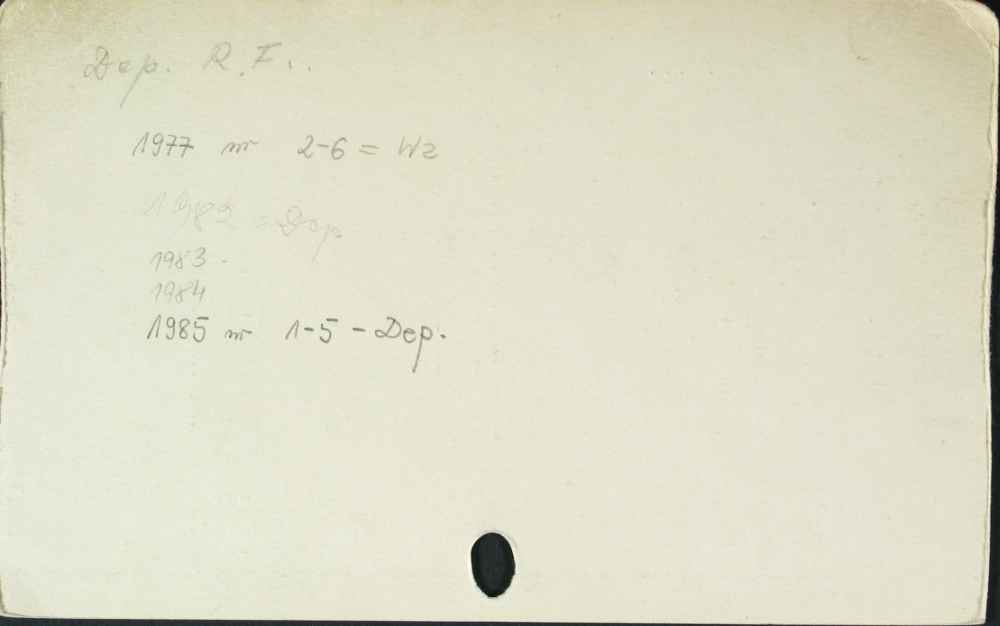 Dep. R. F...
1977 nr 2-6 = Wz
1982 = Dep
1983 -
1984
1985 nr 1-5 - Dep.